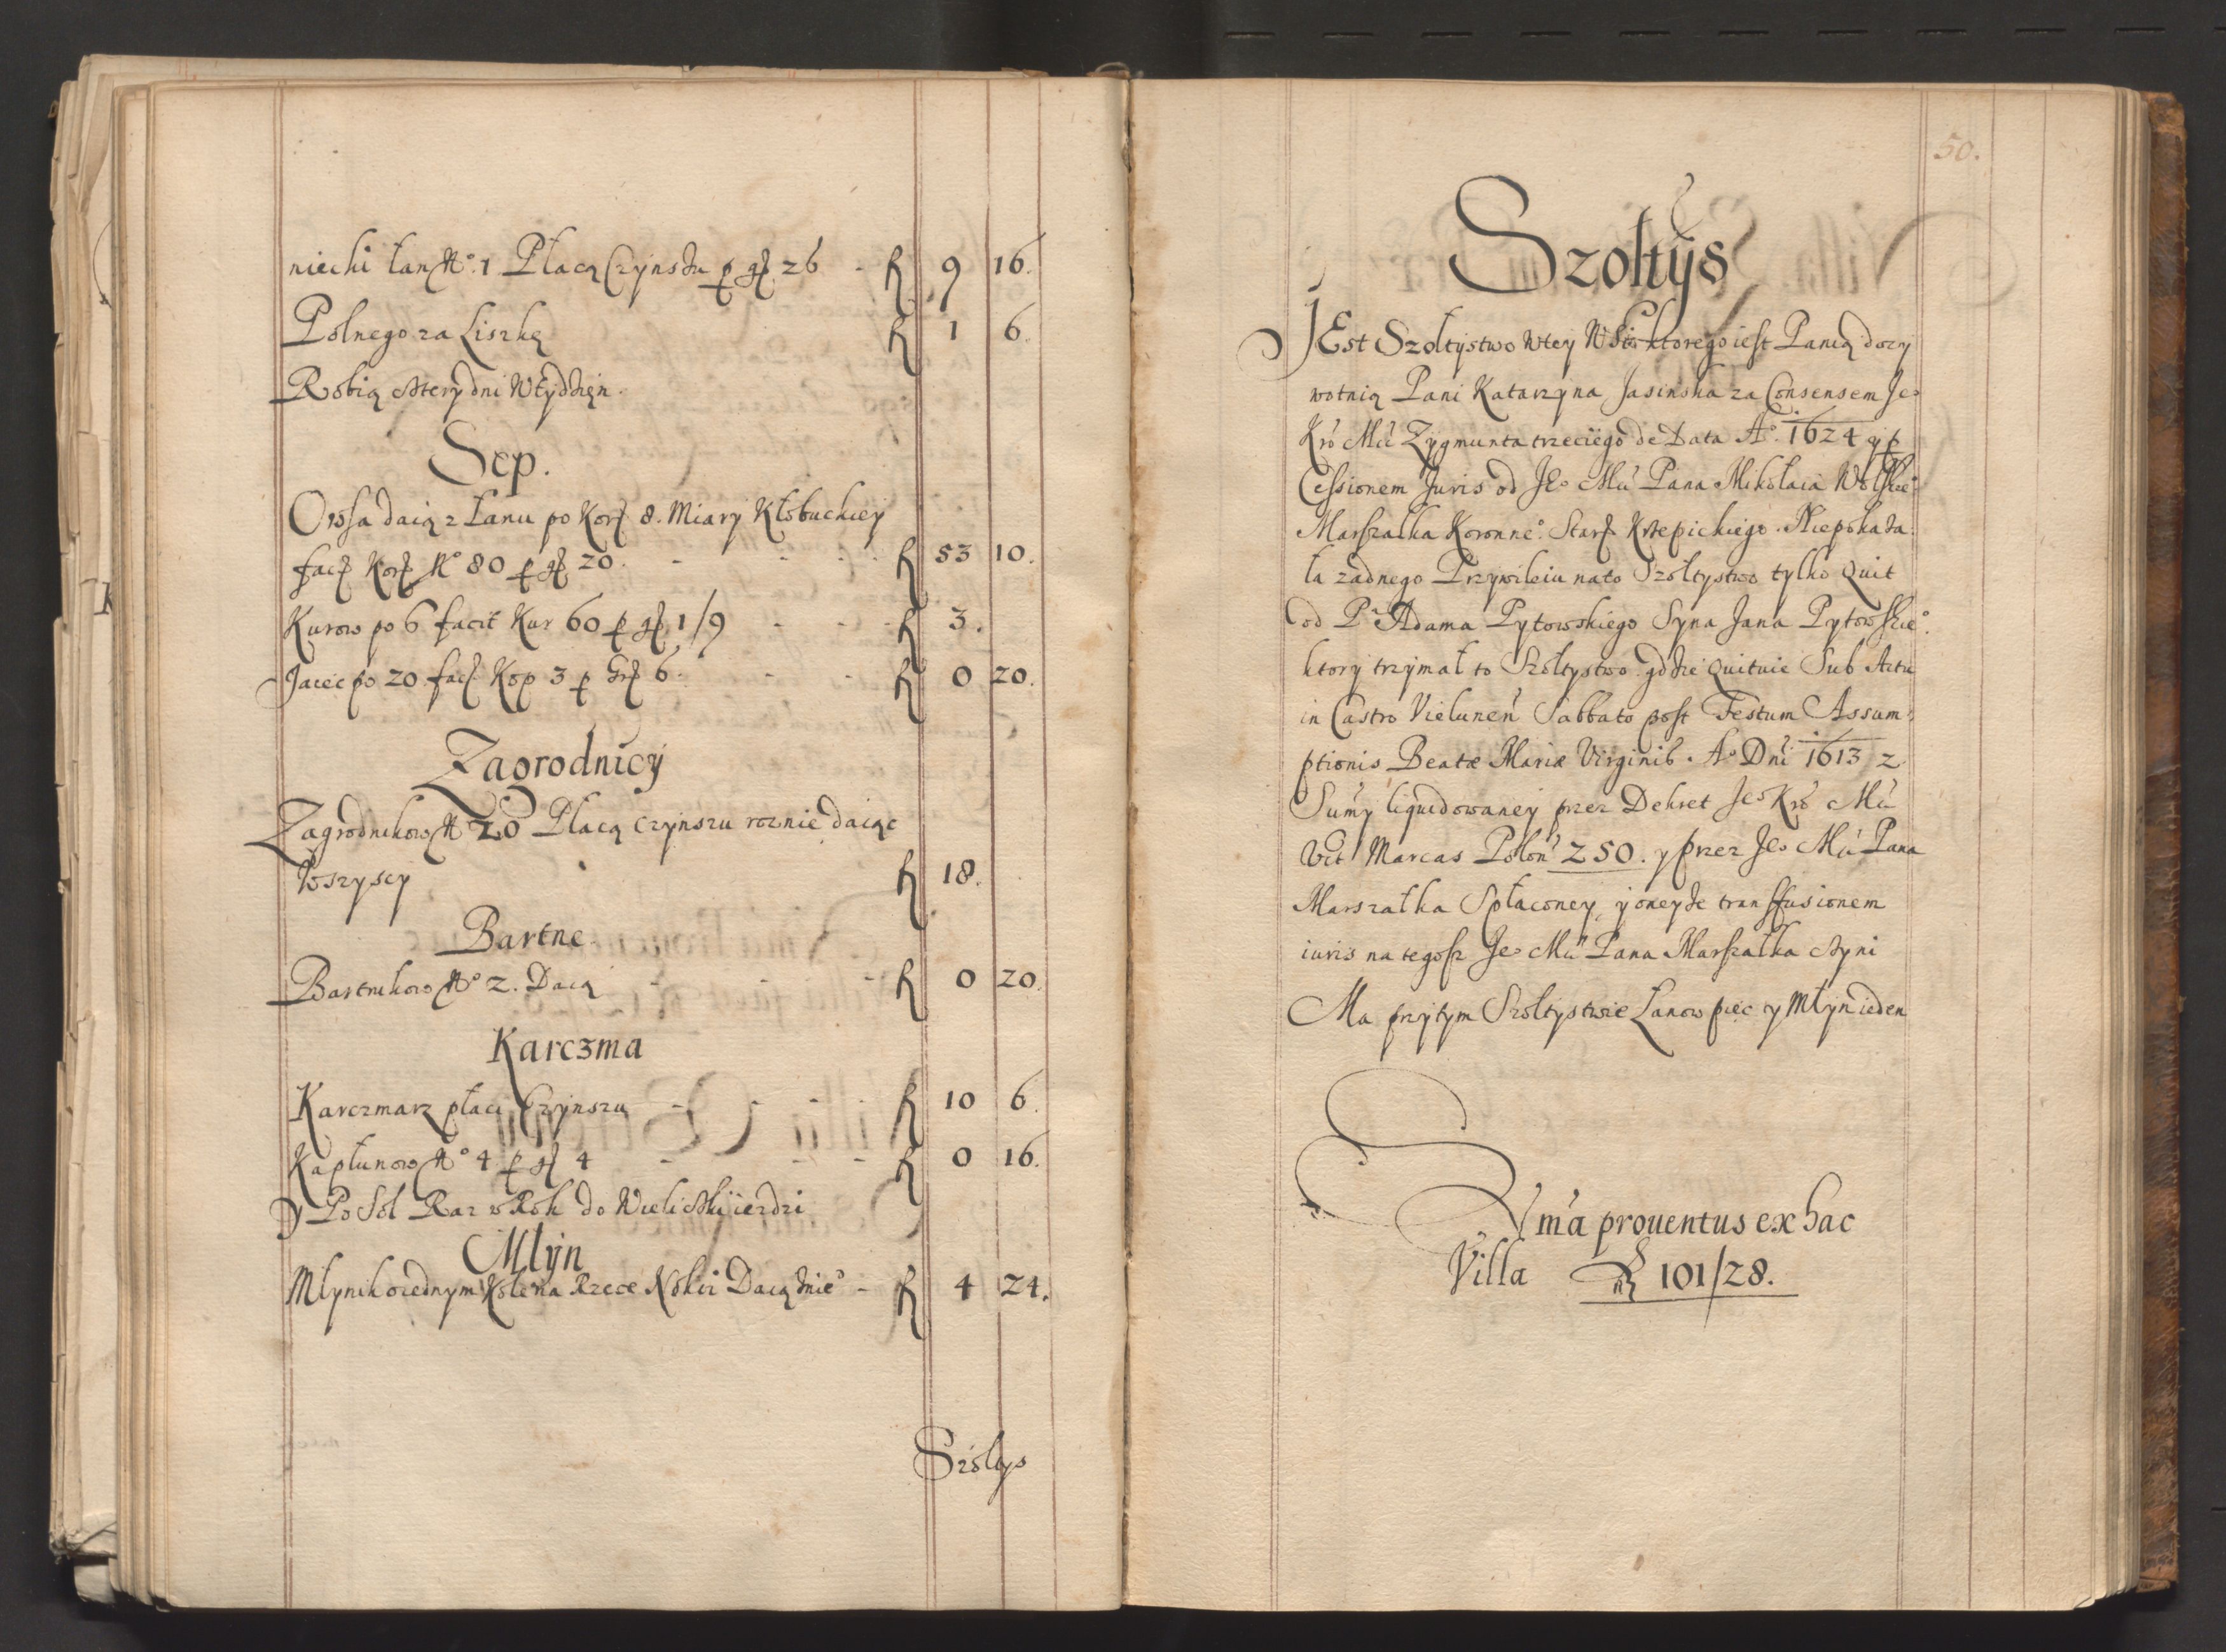 niecki łan Nº. 1 Płacą Czynszu p gſ 26 - fl 9 16.
Polnego za Liszkę fl 1 6.
Robią cztery dni W tydzień.
Sep.
Owsa daią z Łanu po Korſ 8. Miary Kłobuckiey
facſ Korſ Nº 80 p gſ 20. - - - fl 53 10.
Kurow po 6 facit Kur 60 p gſ 1/9 - - - fl 3.
Jaiec po 20 facſ Kop 3 p Grſ 6. - - fl 0 20.
Zagrodnicy
Zagrodnikow Nº 20 Płacą czynszu rocznie daiąc
Wszyscy fl 18.
Bartne.
Bartnikow Nº 2. Daią - - - fl 0 20.
Karczma
Karczmarz płaci Czynszu - - - fl 10 6.
Kapłunow Nº 4 p gſ 4 - - - fl 0 16.
Po Sol Raz w Rok do Wieliczki iezdzi
Młyn
Młynik o iednym Kole na Rzece - fl 4 24.
Szołtys
50.
Szołtys
JEst Szołtystwo w tey Wsi ktorego iest Panią dozy
wotnią Pani Katarzyna Jasinska za Consensem Je°
Kró Mći Zygmunta trzeciego de Data A°. 1624 y p
Cessionem Juris od Je° Mći Pana Mikołaia Wolskie°
Marszałka Koronne°. Starſ Krzepickiego. Niepokaza
ła zadnego Przywileiu na to Szołtystwo tylko Quit
od Pª Adama Pytowskiego Syna Jana Pytowskie°.
ktory trzymał to Szołtystwo gdzie quituie Sub Actu
in Castro Vielunen Sabbato post Festum Assum:
ptionis Beatæ Mariæ Virginis. A° Dni 1613 z
Sumy liquidowaney przez Dekret Je° Kró Mći
Vit Marcas Polon 250. y przez Je° Mći Pana
Marszałka Spłaconey, y oneyze transfusionem
iuris na tegosz Je° Mći Pana Marszałka czyni
Ma przytym Szołtystwie Łanow pięc y Młyn ieden
Sm̃a prouentus ex hac
Villa fl 101/28.